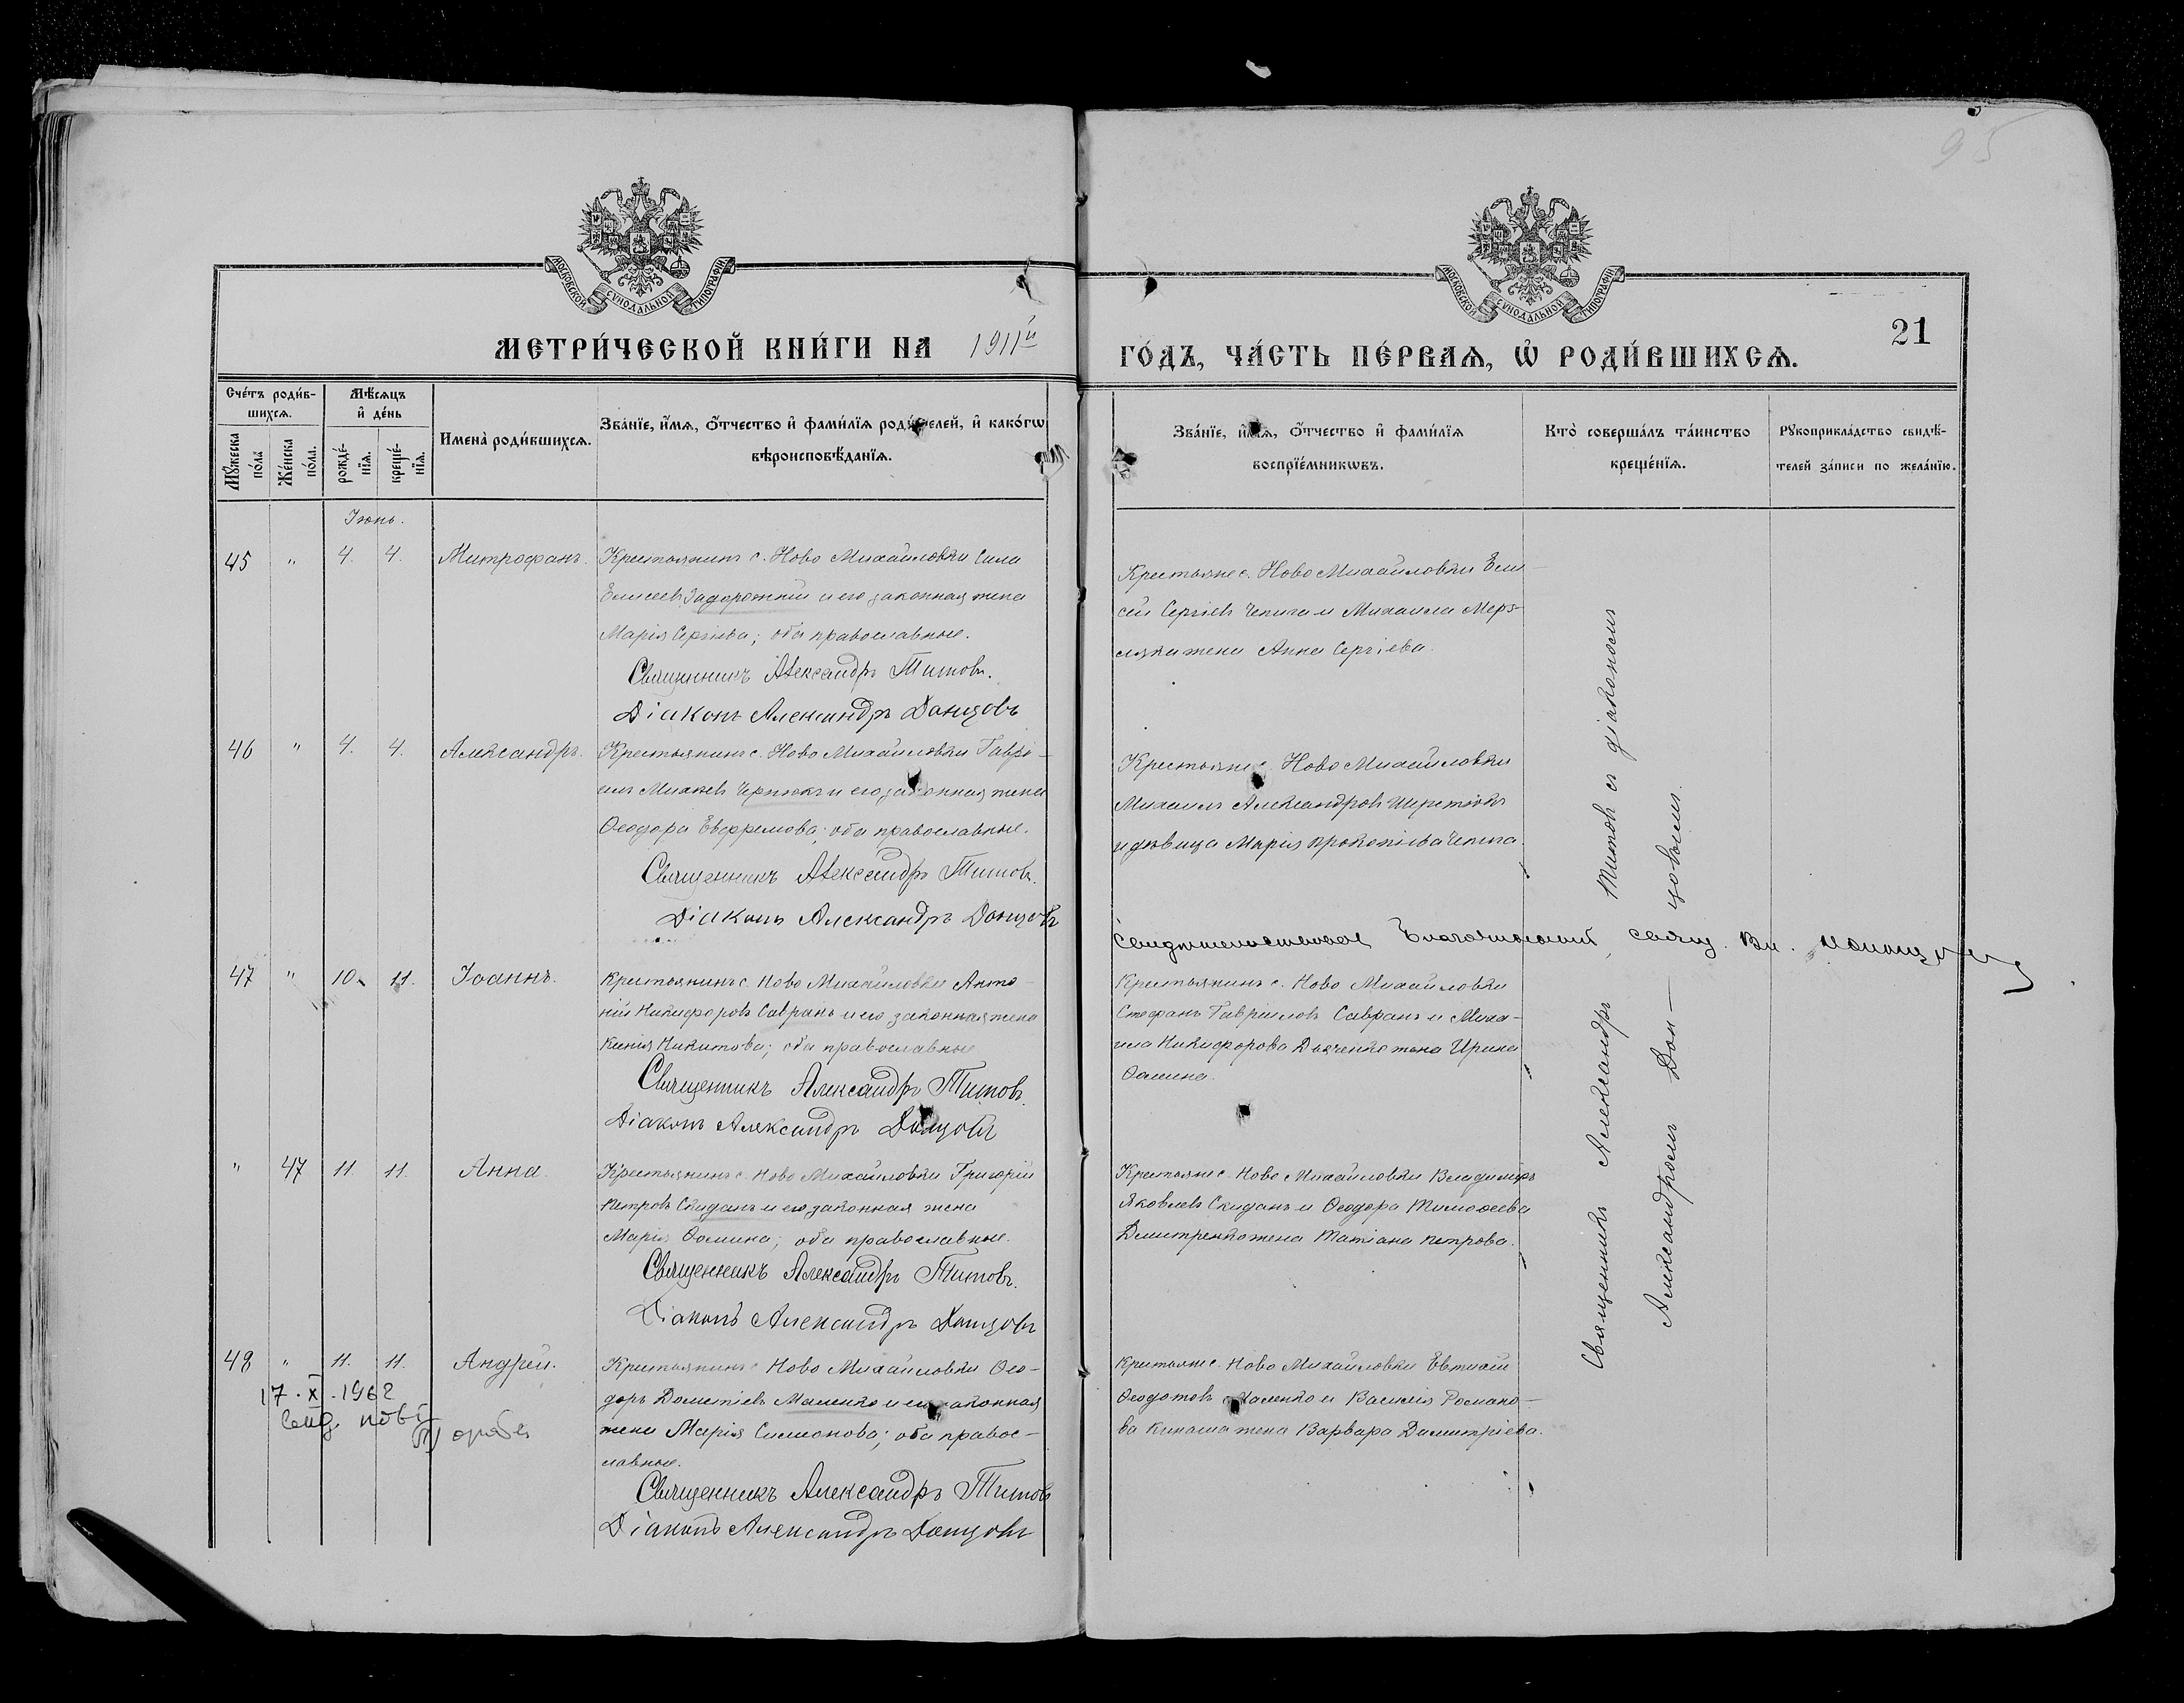 95
МОСКОВСКОЙ СѴНОДАЛЬНОЙ ТИПОГРАФІИ
МОСКОВСКОЙ СѴНОДАЛЬНОЙ ТИПОГРАФІИ
МЕТРИ́ЧЕСКОЙ КНИ́ГИ НА 1911й
ГО́ДЪ, ЧА́СТЬ ПЕ́РВАЯ, Ѡ РОДИ́ВШИХСЯ.
21
Сче́тъ роди́в-
шихся.
Мꙋжеска по́ла
Же́нска по́ла.
Мѣ́сяцъ
и҆ де́нь
рожде́-
нїя.
креще́-
нїя.
Имена̀ роди́вшихся.
Зва́нїе, и҆́мя, ѻ҆́тчество и҆ фами́лїя роди́телей, и҆ како́гѡ
вѣроисповѣ́данїя.
Зва́нїе, и҆́мя, ѻ҆́тчество и҆ фами́лїя
воспрїе́мникѡвъ.
Кто̀ соверша́лъ та́инство
креще́нїя.
Рꙋкоприкла́дство свидѣ́-
телей за́писи по жела́нїю.
Іюнь.
45 " 4. 4. Митрофанъ.
Крестьянинъ с. Ново Михайловки Сила
Елисеев Задорожній и его законная жена
Марія Сергіева; оба православные.
Священникъ Александръ Титовъ.
Діаконъ Александръ Донцовъ
Крестьяне с. Ново Михайловки Ели-
сей Сергіевъ Чепига и Михаила Мерз-
ляка жена Анна Сергіева.
46 " 4. 4. Александръ.
Крестьянинъ с. Ново Михайловки Гаврі-
илъ Чернюкъ и его законная жена
Ѳеодора Евфремова; оба православные.
Священникъ Александръ Титовъ.
Діаконъ Александръ Донцовъ
Крестьяне с. Ново Михайловки
Михаилъ Александровъ
и дѣвица Марія Прокопіева Чепига.
Благочинный, свящ. Вл.
47 " 10. 11. Іоаннъ.
Крестьянинъ с. Ново Михайловки Анто-
ній Никифоровъ Савранъ и его законная жена
Ксенія Никитова; оба православные
Священникъ Александръ Титовъ.
Діаконъ Александръ Донцовъ
Крестьянинъ с. Ново Михайловки
Стефанъ Гавриловъ Савранъ и Миха-
ила Никифорова Дьяченко жена Ирина
Ѳомина.
" 47 11. 11. Анна.
Крестьянинъ с. Ново Михайловки Григорій
Петровъ Скиданъ и его законная жена
Марія Ѳомина; оба православные.
Священникъ Александръ Титовъ.
Діаконъ Александръ Донцовъ
Крестьяне с. Ново Михайловки Владиміръ
Яковлевъ Скиданъ и Ѳеодора Тимоѳеева
Дмитренко жена Татіана Петрова.
48 " 11. 11. Андрей.
17.X.1962
Крестьянинъ с Ново Михайловки Ѳео-
доръ Дометіевъ Маленко и его законная
жена Марія Симонова; оба правос-
лавные.
Священникъ Александръ Титовъ
Діаконъ Александръ Донцовъ
Крестьяне с. Ново Михайловки Евтихій
Ѳедотовъ и Василія Романо-
ва жена Варвара Димитріева.
Священникъ Александръ Титовъ съ діакономъ
Александромъ Дон-
цовымъ.